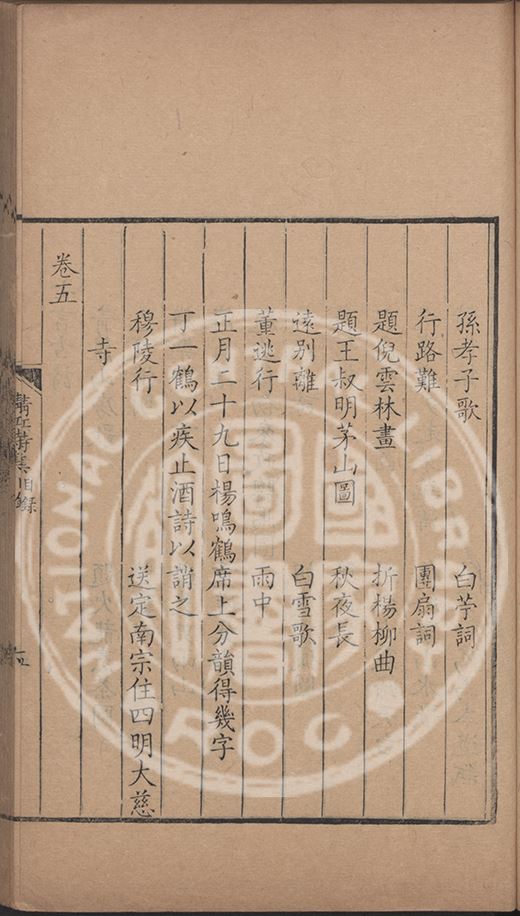 孫孝子歌 白苧詞
行路難 團扇詞
題倪雲林畫 折楊柳曲
題王叔明茅山圖 秋夜長
遠別離 白雪歌
董逃行 雨中
正月二十九日楊鳴鶴席上分韻得幾字
丁一鶴以疾止酒詩以誚之
穆陵行 送定南宗住四明大慈
寺
卷五